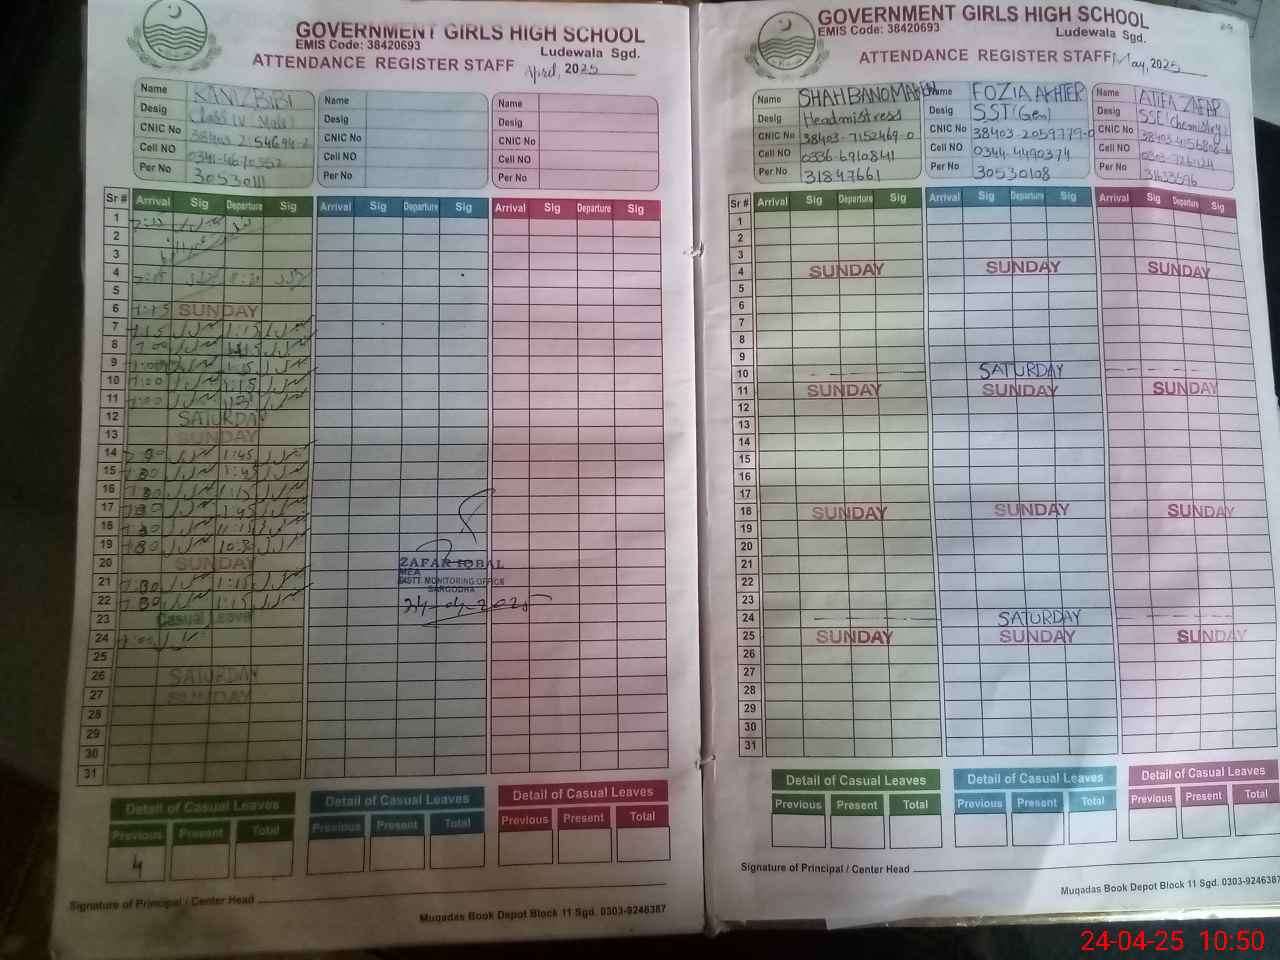 GOVERNMENT GIRLS HIGH SCHOOL
EMIS Code: 38420693
Ludewala Sgd.
ATTENDANCE REGISTER STAFF April, 2025
Name KANIZ BIBI
Desig Class IV (Male)
CNIC No
Cell NO
Per No 3053011
Name
Desig
CNIC No
Cell NO
Per No
Name
Desig
CNIC No
Cell NO
Per No
Sr # Arrival Sig Departure Sig Arrival Sig Departure Sig Arrival Sig Departure Sig
1
2
3
4
5
6 SUNDAY
7 1:15
8
9 1:15
10 1:15
11
12 SATURDAY
13 SUNDAY
14 1:45
15 1:45
16 1:15
17 1:45
18 11:15
19 10:30
20 SUNDAY
21 7:30 1:15
22 7:30 1:15
23 Casual Leave
24
25
26 SATURDAY
27 SUNDAY
28
29
30
31
ZAFAR IQBAL
MEA
DISTT. MONITORING OFFICE
SARGODHA
24-04-2025
Detail of Casual Leaves
Previous Present Total
4
Detail of Casual Leaves
Previous Present Total
Detail of Casual Leaves
Previous Present Total
Signature of Principal / Center Head
Muqadas Book Depot Block 11 Sgd. 0303-9246387
GOVERNMENT GIRLS HIGH SCHOOL
EMIS Code: 38420693
Ludewala Sgd.
ATTENDANCE REGISTER STAFF May, 2025
Name SHAHBANO
Desig Headmistress
CNIC No 38403-7152469-0
Cell NO 0336-6910841
Per No 31847661
Name FOZIA AKHTER
Desig SST (Gen)
CNIC No 38403-2059779-0
Cell NO 0344-4490374
Per No 30530108
Name ATIFA ZAFAR
Desig SSE (Chemistry)
CNIC No
Cell NO
Per No 31633596
Sr # Arrival Sig Departure Sig Arrival Sig Departure Sig Arrival Sig Departure Sig
1
2
3
4 SUNDAY SUNDAY SUNDAY
5
6
7
8
9
10 SATURDAY
11 SUNDAY SUNDAY SUNDAY
12
13
14
15
16
17
18 SUNDAY SUNDAY SUNDAY
19
20
21
22
23
24 SATURDAY
25 SUNDAY SUNDAY SUNDAY
26
27
28
29
30
31
Detail of Casual Leaves
Previous Present Total
Detail of Casual Leaves
Previous Present Total
Detail of Casual Leaves
Previous Present Total
Signature of Principal / Center Head
Muqadas Book Depot Block 11 Sgd. 0303-9246387
24-04-25 10:50